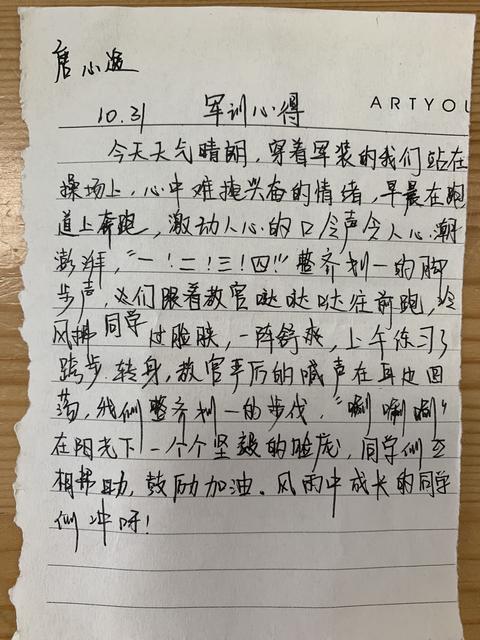 唐心逸
10.31 军训心得 ARTYOU
今天天气晴朗，穿着军装的我们站在
操场上，心中难掩兴奋的情绪，早晨在跑
道上奔跑，激动人心的口令声令人心潮
澎湃，“一！二！三！四！”整齐划一的脚
步声，我们跟着教官哒哒哒往前跑，冷
风拂同学过脸颊，一阵舒爽，上午练习了
跨步.转身，教官严厉的喊声在耳边回
荡，我们整齐划一的步伐，“唰唰唰”
在阳光下一个个坚毅的脸庞，同学们互
相帮助，鼓励加油。风雨中成长的同学
们冲呀！